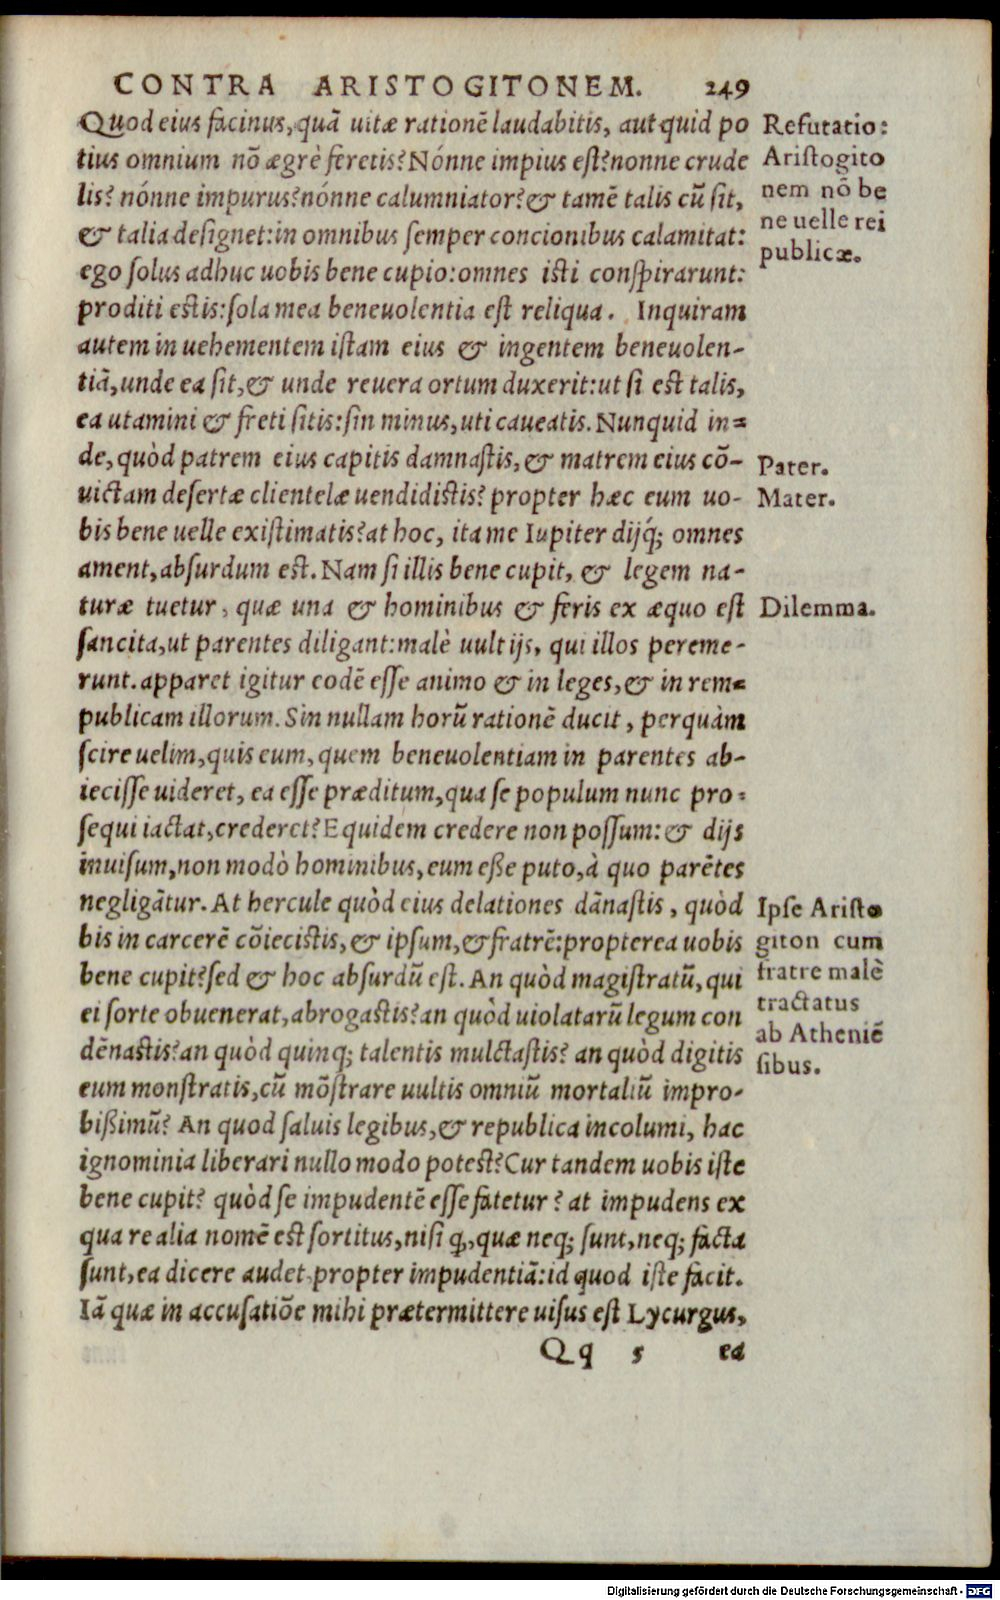 CONTRA ARISTOGITONEM. 249
Quod eius facinus, quã uitæ rationẽ laudabitis, aut quid po
tius omnium nõ ægrè feretis? Nónne impius est? nonne crude
lis? nónne impurus? nónne calumniator? & tamẽ talis cũ sit,
& talia designet: in omnibus semper concionibus calamitat:
ego solus adhuc uobis bene cupio: omnes isti conspirarunt:
proditi estis: sola mea beneuolentia est reliqua. Inquiram
autem in uehementem istam eius & ingentem beneuolen-
tiã, unde ea sit, & unde reuera ortum duxerit: ut si est talis,
ea utamini & freti sitis: sin minus, uti caueatis. Nunquid in=
de, quòd patrem eius capitis damnastis, & matrem eius cõ-
uictam desertæ clientelæ uendidistis? propter hæc eum uo-
bis bene uelle existimatis? at hoc, ita me Iupiter dijq́; omnes
ament, absurdum est. Nam si illis bene cupit, & legem na-
turæ tuetur, quæ una & hominibus & feris ex æquo est
sancita, ut parentes diligant: malè uult ijs, qui illos pereme-
runt. apparet igitur eodẽ esse animo & in leges, & in rem=
publicam illorum. Sin nullam horũ rationẽ ducit, perquàm
scire uelim, quis eum, quem beneuolentiam in parentes ab-
iecisse uideret, ea esse præditum, qua se populum nunc pro=
sequi iactat, crederet? Equidem credere non possum: & dijs
inuisum, non modò hominibus, eum eße puto, à quo parẽtes
negligãtur. At hercule quòd eius delationes dãnastis, quòd
bis in carcerẽ cõiecistis, & ipsum, & fratrẽ: propterea uobis
bene cupit? sed & hoc absurdũ est. An quòd magistratũ, qui
ei sorte obuenerat, abrogastis? an quòd uiolatarũ legum con
dẽnastis? an quòd quinq; talentis mulctastis? an quòd digitis
eum monstratis, cũ mõstrare uultis omniũ mortaliũ impro-
bißimũ? An quod saluis legibus, & republica incolumi, hac
ignominia liberari nullo modo potest? Cur tandem uobis iste
bene cupit? quòd se impudentẽ esse fatetur? at impudens ex
qua re alia nomẽ est sortitus, nisi q̃, quæ neq; sunt, neq; facta
sunt, ea dicere audet propter impudentiã: id quod iste facit.
Iã quæ in accusatiõe mihi prætermittere uisus est Lycurgus,
Qq 5 ea
Refutatio:
Aristogito
nem nõ be
ne uelle rei
publicæ.
Pater.
Mater.
Dilemma.
Ipse Aristo
giton cum
fratre malè
tractatus
ab Atheniẽ
sibus.
Digitalisierung gefördert durch die Deutsche Forschungsgemeinschaft - DFG